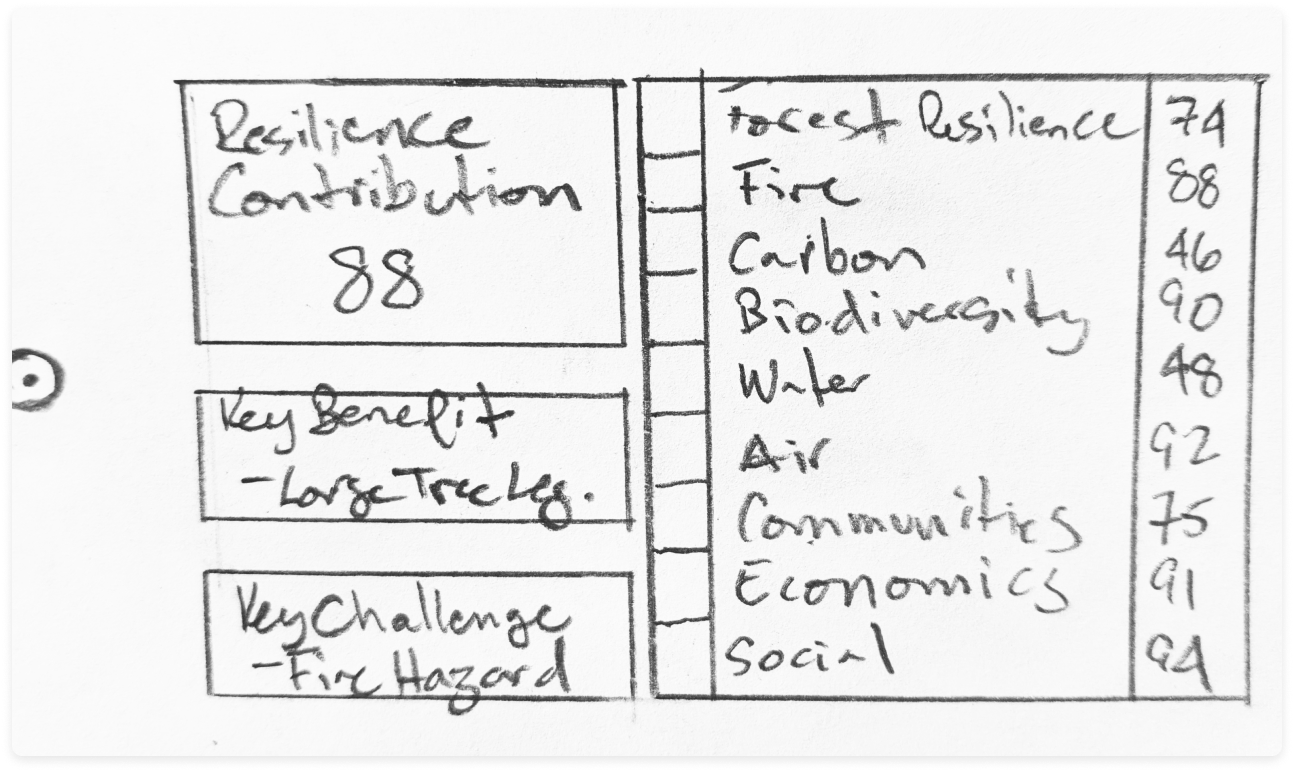 Resilience
Contribution
88
Key Benefit
- Large Tree Leg.
Key Challenge
- Fire Hazard
Forest Resilience 74
Fire 88
Carbon 46
Biodiversity 90
Water 48
Air 92
Communities 75
Economics 91
Social 94